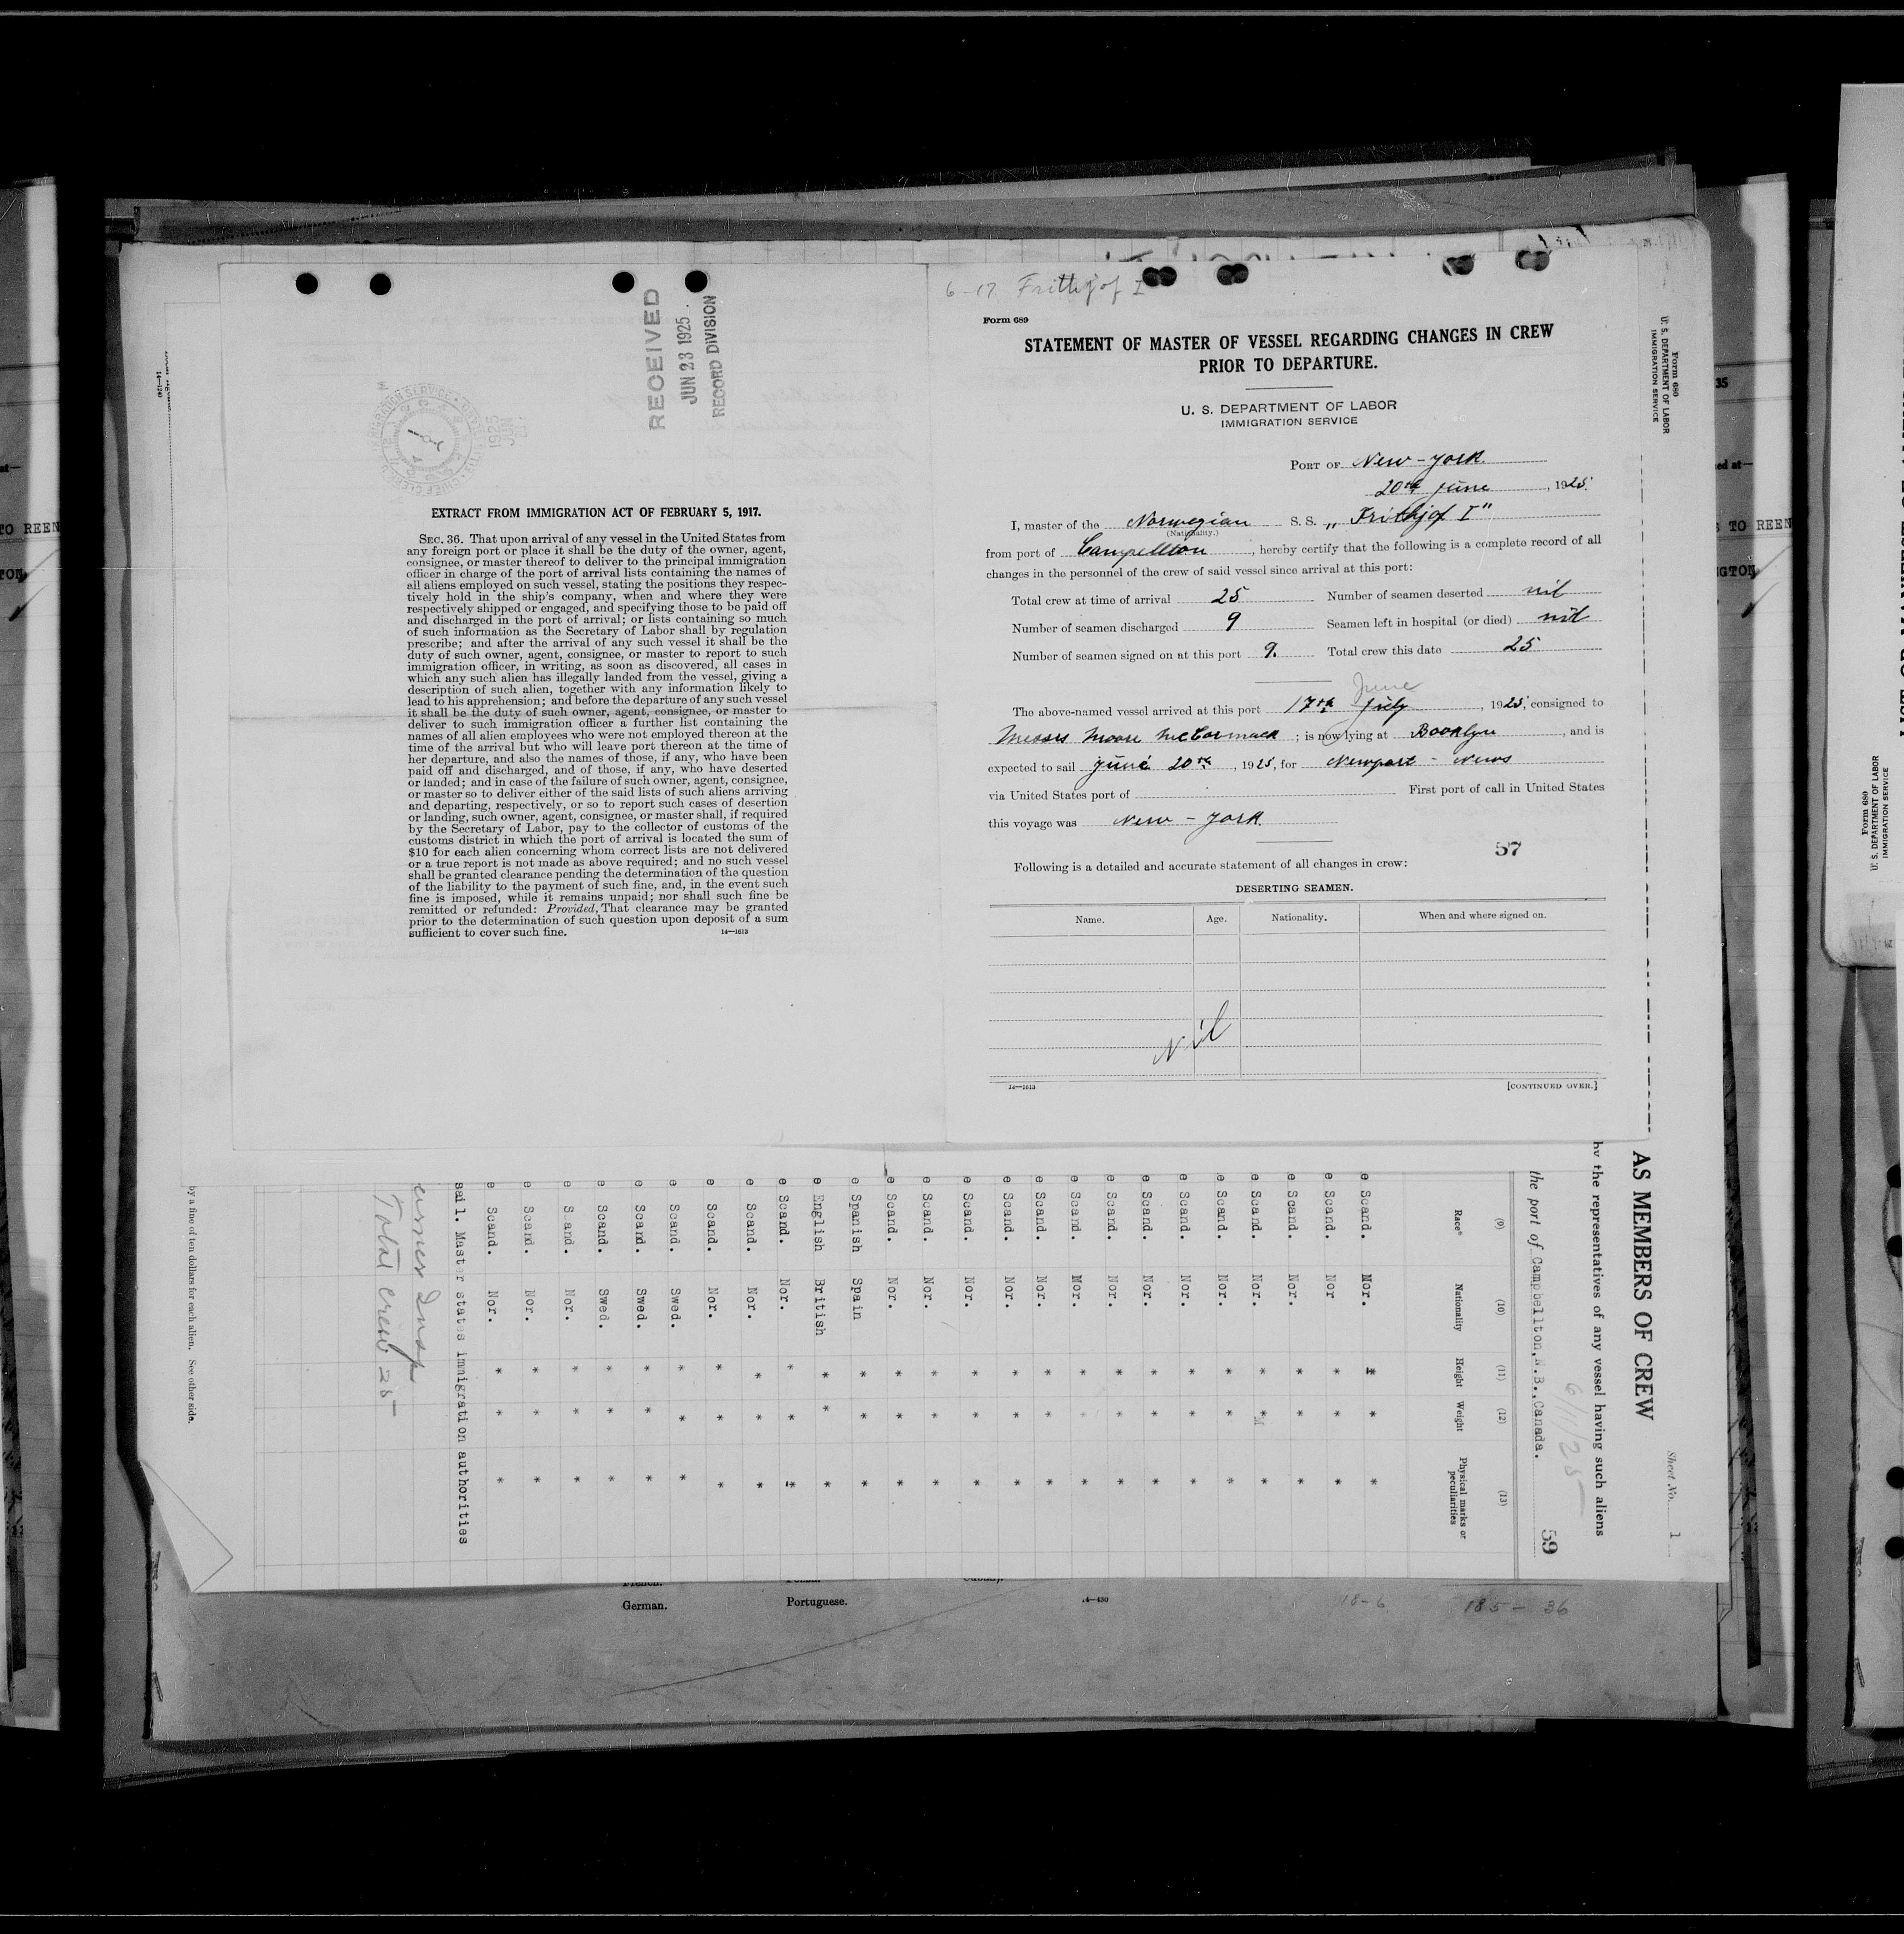 6-17 Frithjof I
Form 689
STATEMENT OF MASTER OF VESSEL REGARDING CHANGES IN CREW
PRIOR TO DEPARTURE.
U. S. DEPARTMENT OF LABOR
IMMIGRATION SERVICE
PORT OF New-York.
20th June, 1925.
I, master of the Norwegian S. S. „ Frithjof I"
(Nationality.)
from port of Campellton, hereby certify that the following is a complete record of all
changes in the personnel of the crew of said vessel since arrival at this port:
Total crew at time of arrival 25 Number of seamen deserted nil
Number of seamen discharged 9 Seamen left in hospital (or died) nil
Number of seamen signed on at this port 9. Total crew this date 25
June
The above-named vessel arrived at this port 17th July, 1925, consigned to
Messrs Moore McCormack; is now lying at Booklyn, and is
expected to sail june 20th, 1925, for Newport - News
via United States port of First port of call in United States
this voyage was New - York.
57
Following is a detailed and accurate statement of all changes in crew:
DESERTING SEAMEN.
Name. Age. Nationality. When and where signed on.
Nil
14—1613 [CONTINUED OVER.]
RECEIVED
JUN 23 1925
RECORD DIVISION
1925
JUN
EXTRACT FROM IMMIGRATION ACT OF FEBRUARY 5, 1917.
SEC. 36. That upon arrival of any vessel in the United States from
any foreign port or place it shall be the duty of the owner, agent,
consignee, or master thereof to deliver to the principal immigration
officer in charge of the port of arrival lists containing the names of
all aliens employed on such vessel, stating the positions they respec-
tively hold in the ship's company, when and where they were
respectively shipped or engaged, and specifying those to be paid off
and discharged in the port of arrival; or lists containing so much
of such information as the Secretary of Labor shall by regulation
prescribe; and after the arrival of any such vessel it shall be the
duty of such owner, agent, consignee, or master to report to such
immigration officer, in writing, as soon as discovered, all cases in
which any such alien has illegally landed from the vessel, giving a
description of such alien, together with any information likely to
lead to his apprehension; and before the departure of any such vessel
it shall be the duty of such owner, agent, consignee, or master to
deliver to such immigration officer a further list containing the
names of all alien employees who were not employed thereon at the
time of the arrival but who will leave port thereon at the time of
her departure, and also the names of those, if any, who have been
paid off and discharged, and of those, if any, who have deserted
or landed; and in case of the failure of such owner, agent, consignee,
or master so to deliver either of the said lists of such aliens arriving
and departing, respectively, or so to report such cases of desertion
or landing, such owner, agent, consignee, or master shall, if required
by the Secretary of Labor, pay to the collector of customs of the
customs district in which the port of arrival is located the sum of
$10 for each alien concerning whom correct lists are not delivered
or a true report is not made as above required; and no such vessel
shall be granted clearance pending the determination of the question
of the liability to the payment of such fine, and, in the event such
fine is imposed, while it remains unpaid; nor shall such fine be
remitted or refunded: Provided, That clearance may be granted
prior to the determination of such question upon deposit of a sum
sufficient to cover such fine. 14—1613
Form 689
U. S. DEPARTMENT OF LABOR
IMMIGRATION SERVICE
Sheet No. 1
AS MEMBERS OF CREW
by the representatives of any vessel having such aliens
6/11/25
the port of Campbellton, N.B., Canada. 59
(9) (10) (11) (12) (13)
Race* Nationality Height Weight Physical marks or peculiarities
e Scand. Nor. * * *
e Scand. Nor * * *
e Scand. Nor. * * *
e Scand. Nor. * * *
e Scand. Nor. * * *
e Scand. Nor. * * *
e Scand. Nor. * * *
e Scand. Nor. * * *
e Scand. Nor. * * *
e Scand. Nor. * * *
e Scand. Nor. * * *
e Scand. Nor. * * *
e Scand. Nor. * * *
e Scand. Nor. * * *
e Spanish Spain * * *
e English British * * *
e Scand. Nor. * * *
e Scand. Nor. * * *
e Scand. Nor. * * *
e Scand. Swed. * * *
e Scand. Swed. * * *
e Scand. Swed. * * *
e Scand. Nor. * * *
e Scand. Nor. * * *
e Scand. Nor. * * *
sail. Master states immigration authorities
Total crew = 25
by a fine of ten dollars for each alien. See other side.
French.
German. Portuguese. 14—430 18-6 185 - 36
Form 689
U. S. DEPARTMENT OF LABOR
IMMIGRATION SERVICE
TO REEN
TO REEN